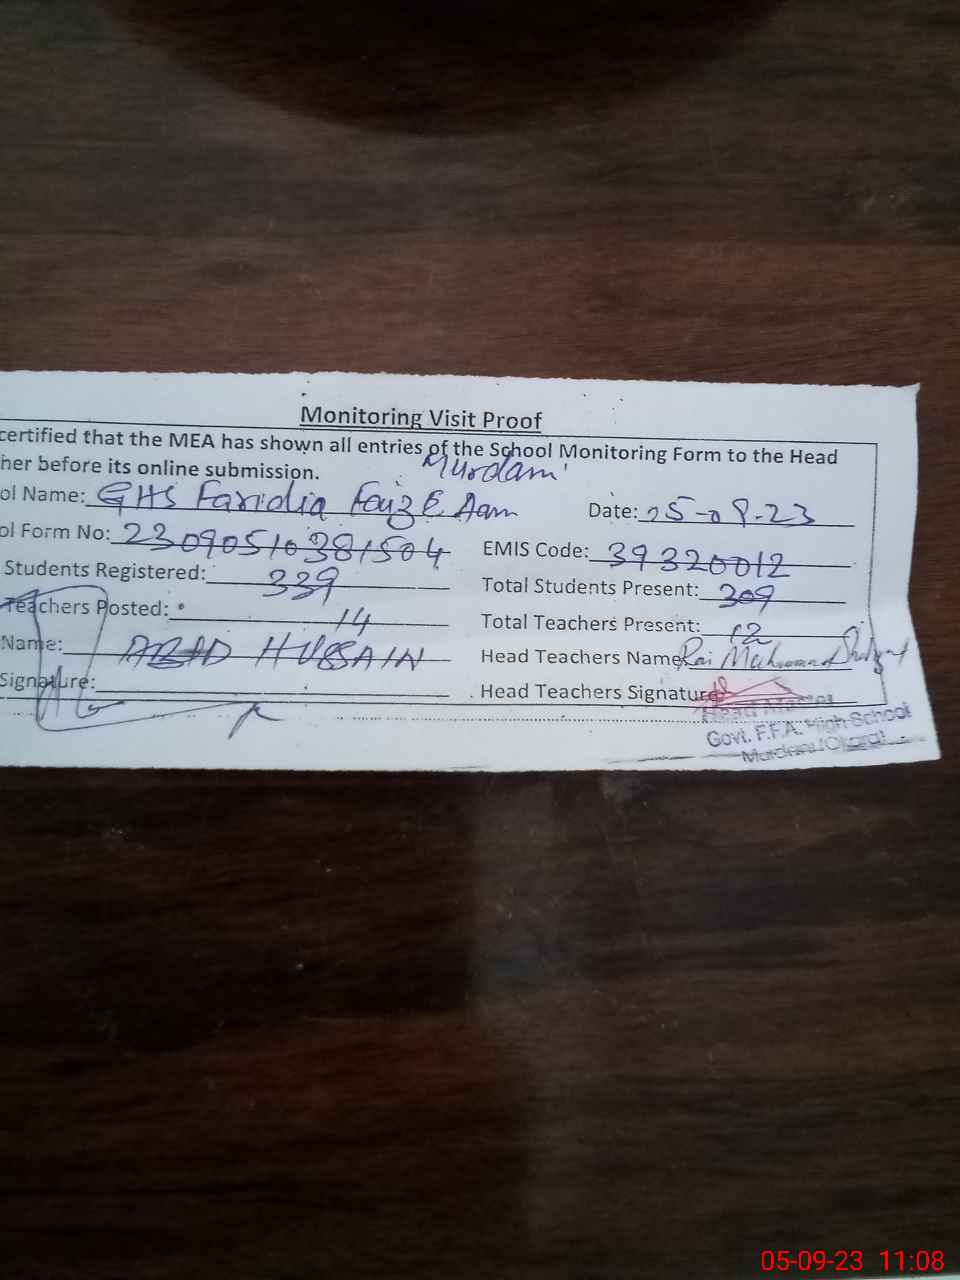 Monitoring Visit Proof
certified that the MEA has shown all entries of the School Monitoring Form to the Head
her before its online submission.
Murdani
ol Name: GHS Faridia Faiz E Aam Date: 05-09-23
ol Form No: 23090510381504 EMIS Code: 39320012
Students Registered: 339 Total Students Present: 309
Teachers Posted: 14 Total Teachers Present: 12
Name: ABID HUSSAIN Head Teachers Name Rai Muhammad
Signature: Head Teachers Signature
Head Master
Govt. F.F.A. High School
05-09-23 11:08